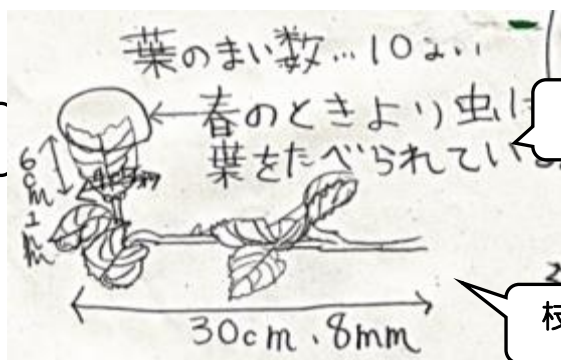 葉のまい数…10まい
春のときより虫に
葉をたべられている。
6cm1mm
30cm.8mm
枝